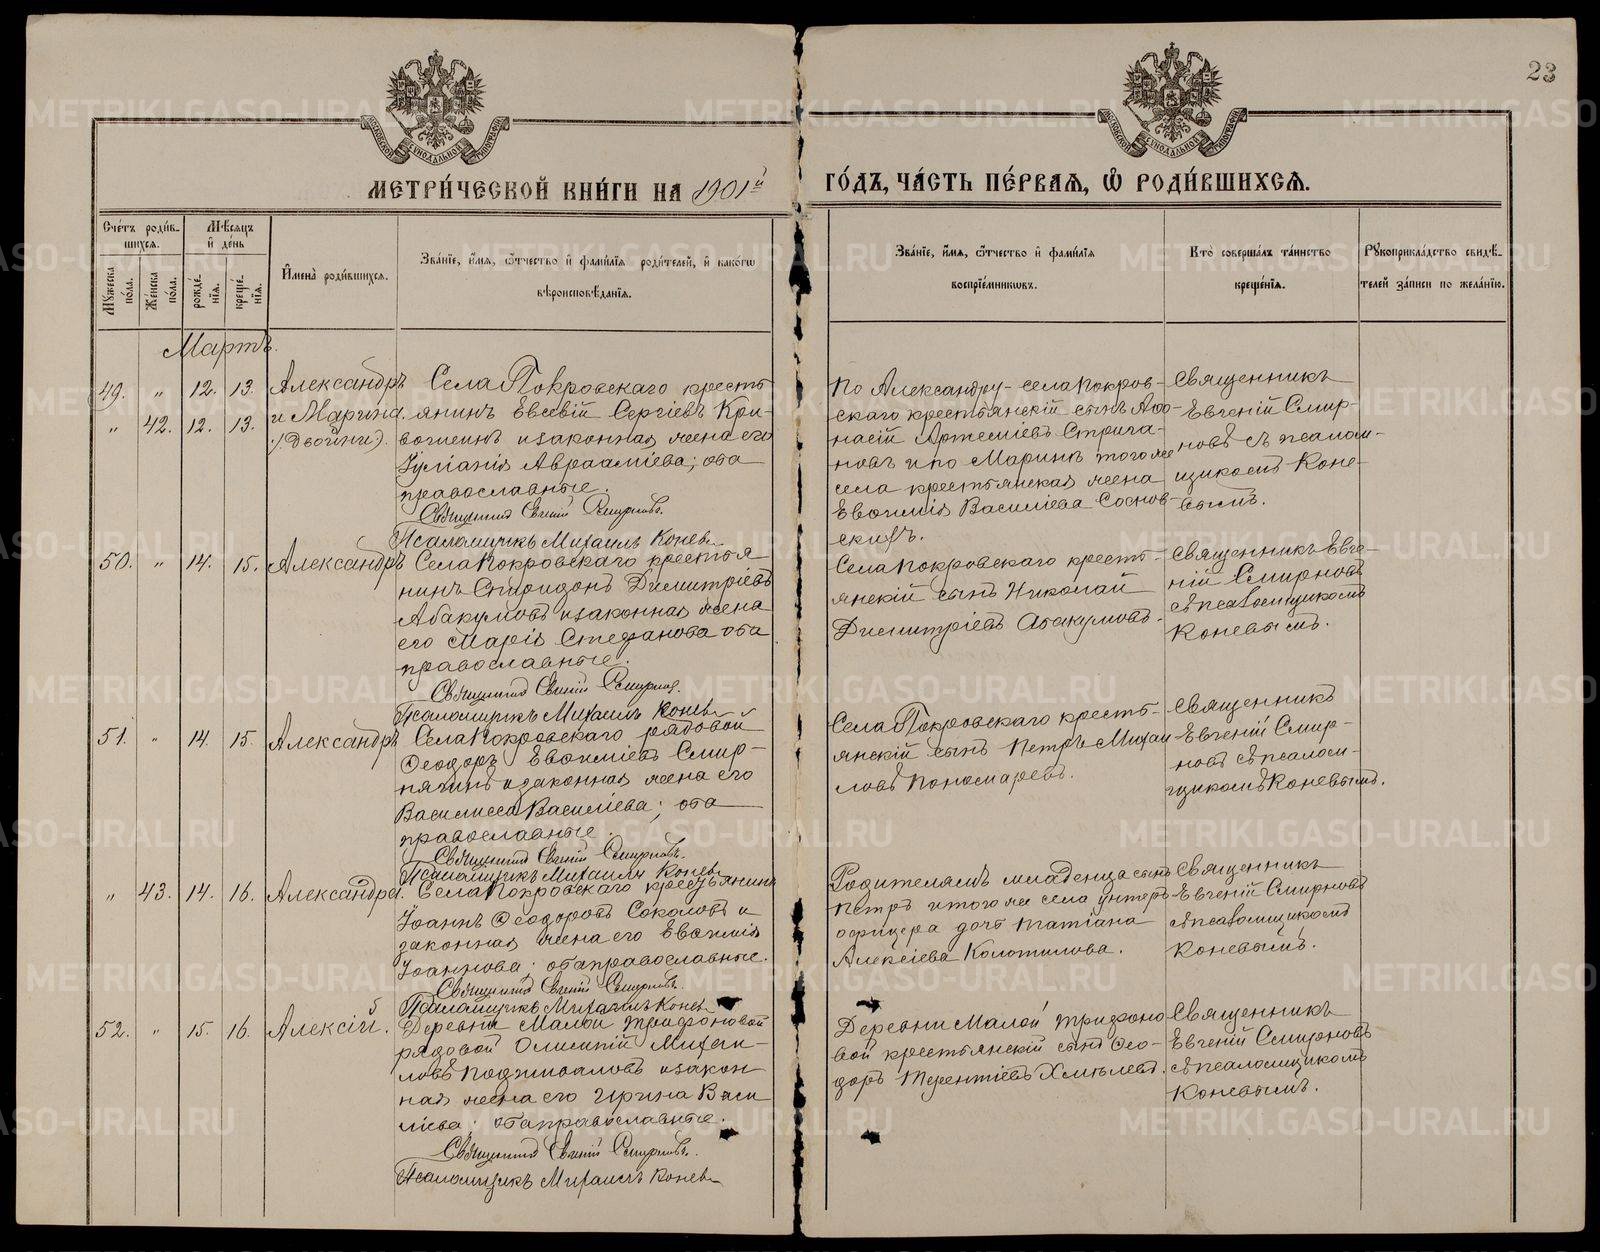 23
МЕТРИ́ЧЕСКОЙ КНИ́ГИ НА 1901й
ГО́ДЪ, ЧА́СТЬ ПЕ́РВАЯ, Ѡ҆ РОДИ́ВШИХСЯ.
Сче́тъ роди́в-
шихся.
Му́жеска по́ла.
Же́нска по́ла.
Мѣ́сяцъ
и҆ де́нь
рожде́-
нїя.
креще́-
нїя.
И҆мена̀ роди́вшихся.
Зва́нїе, и҆́мя, ѻ҆́тчество и҆ фами́лїя роди́телей, и҆ како́гѡ
вѣроисповѣ́данїя.
Зва́нїе, и҆́мя, ѻ҆́тчество и҆ фами́лїя
воспрїе́мникѡвъ.
Кто̀ соверша́лъ та́инство
креще́нїя.
Рꙋкоприкла́дство свидѣ́-
телей за́писи по жела́нїю.
Мартъ.
49. " 12. 13. Александръ
" 42. 12. 13. и Марина.
(Двойни).
Села Покровскаго кресть
янинъ Евсевій Сергіевъ Кри-
воногинъ и законная жена его
Іуліанія Авраамiева; оба
православные.
Священникъ Евгеній Смирновъ.
Псаломщикъ Михаилъ Коневъ
По Александру - села Покров-
скаго крестьянскій сынъ Аѳа-
насій Артеміевъ Стрига-
новъ и по Маринѣ того же
села крестьянская жена
Евфимія Василіева Соснов-
скихъ.
Священникъ
Евгеній Смир-
новъ съ псалом-
щикомъ Коне-
вымъ.
50. " 14. 15. Александръ
Села Покровскаго крестья
нинъ Спиридонъ Димитріевъ
Абакумовъ и законная жена
его Марія Стефанова оба
православные.
Священникъ Евгеній Смирновъ.
Псаломщикъ Михаилъ Коневъ
Села Покровскаго кресть-
янскій сынъ Николай
Димитріевъ Абакумовъ.
Священникъ Евге-
ній Смирновъ
съ псаломщикомъ
Коневымъ.
51. " 14. 15. Александръ
Села Покровскаго рядовой
Ѳеодоръ Евфиміевъ Смир-
нягинъ и законная жена его
Василисса Василіева; оба
православные.
Священникъ Евгеній Смирновъ.
Псаломщикъ Михаилъ Коневъ
Села Покровскаго кресть-
янскій сынъ Петръ Михаи
ловъ Пономаревъ.
Священникъ
Евгеній Смир-
новъ съ псалом-
щикомъ Коневымъ.
" 43. 14. 16. Александра.
Села Покровскаго крестьянинъ
Іоаннъ Ѳеодоровъ Соколовъ и
законная жена его Евфимія
Іоаннова; оба православные.
Священникъ Евгеній Смирновъ.
Псаломщикъ Михаилъ Коневъ
Родителямъ младенца сынъ
Петръ и того же села унтеръ
офицера дочь Татіана
Алексіева Колотилова.
Священникъ
Евгеній Смирновъ
съ псаломщикомъ
Коневымъ.
52. " 15. 16. Алексій.
Деревни Малой Трифоновой
рядовой Олимпій Михаи-
ловъ и закон
ная жена его Ирина Васи
ліева; оба православные.
Священникъ Евгеній Смирновъ.
Псаломщикъ Михаилъ Коневъ
Деревни Малой Трифоно
вой крестьянскій сынъ Ѳео-
доръ Терентіевъ Хмѣлевъ.
Священникъ
Евгеній Смирновъ
съ псаломщикомъ
Коневымъ.
METRIKI.GASO-URAL.RU